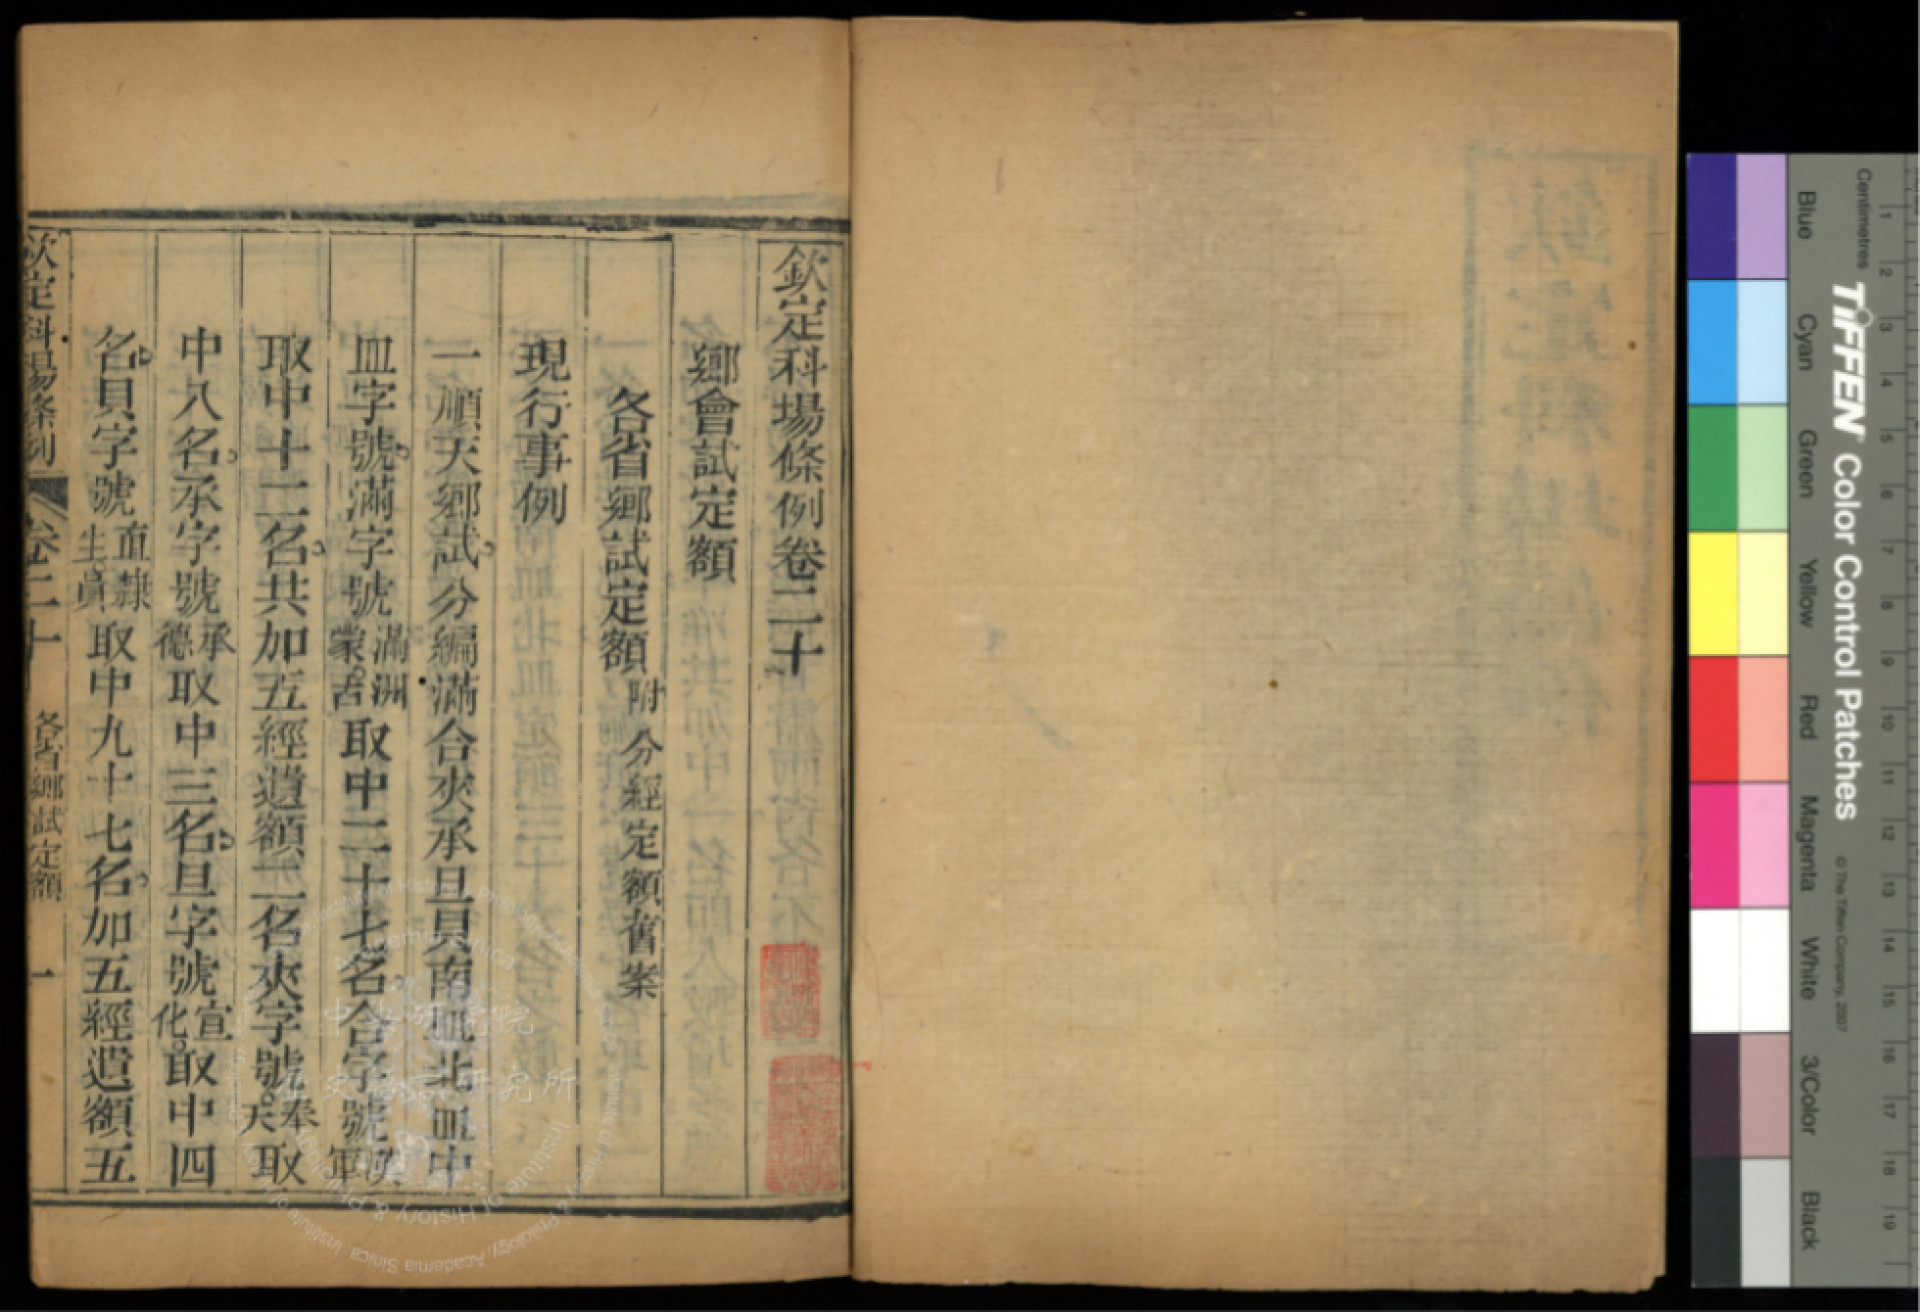 欽定科場條例卷二十
鄉會試定額
各省鄉試定額附分經定額舊案
現行事例
一順天鄉試分編滿合夾承旦貝南皿北皿中
皿字號滿字號滿洲蒙古取中二十七名合字號漢軍
取中十二名共加五經遺額二名夾字號奉天取
中八名承字號承德取中三名旦字號宣化取中四
名貝字號直隸生員取中九十七名加五經遺額五
欽定科場條例 卷二十 各省鄉試定額 一
Centimetres
1 2 3 4 5 6 7 8 9 10 11 12 13 14 15 16 17 18 19
TIFFEN Color Control Patches © The Tiffen Company, 2007
Blue Cyan Green Yellow Red Magenta White 3/Color Black
中央研究院
歷史語言研究所
Institute of History & Philology, Academia Sinica